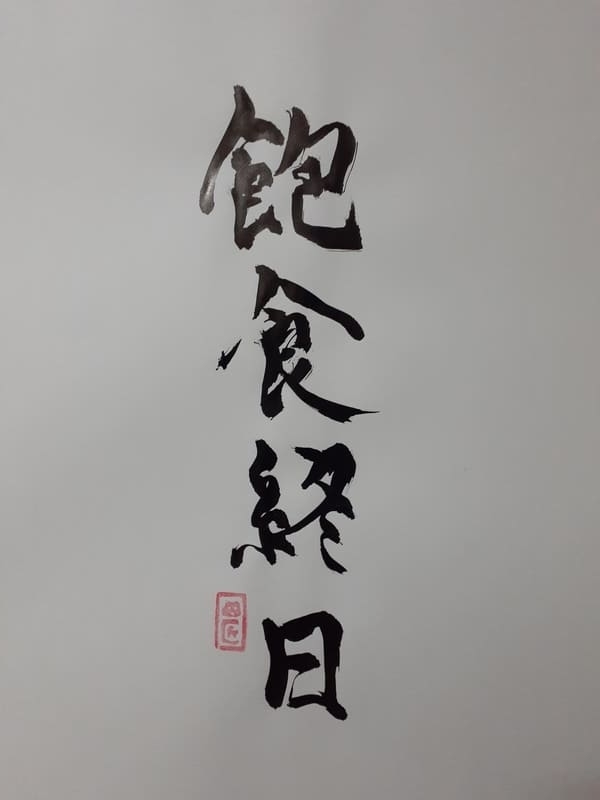 飽食終日